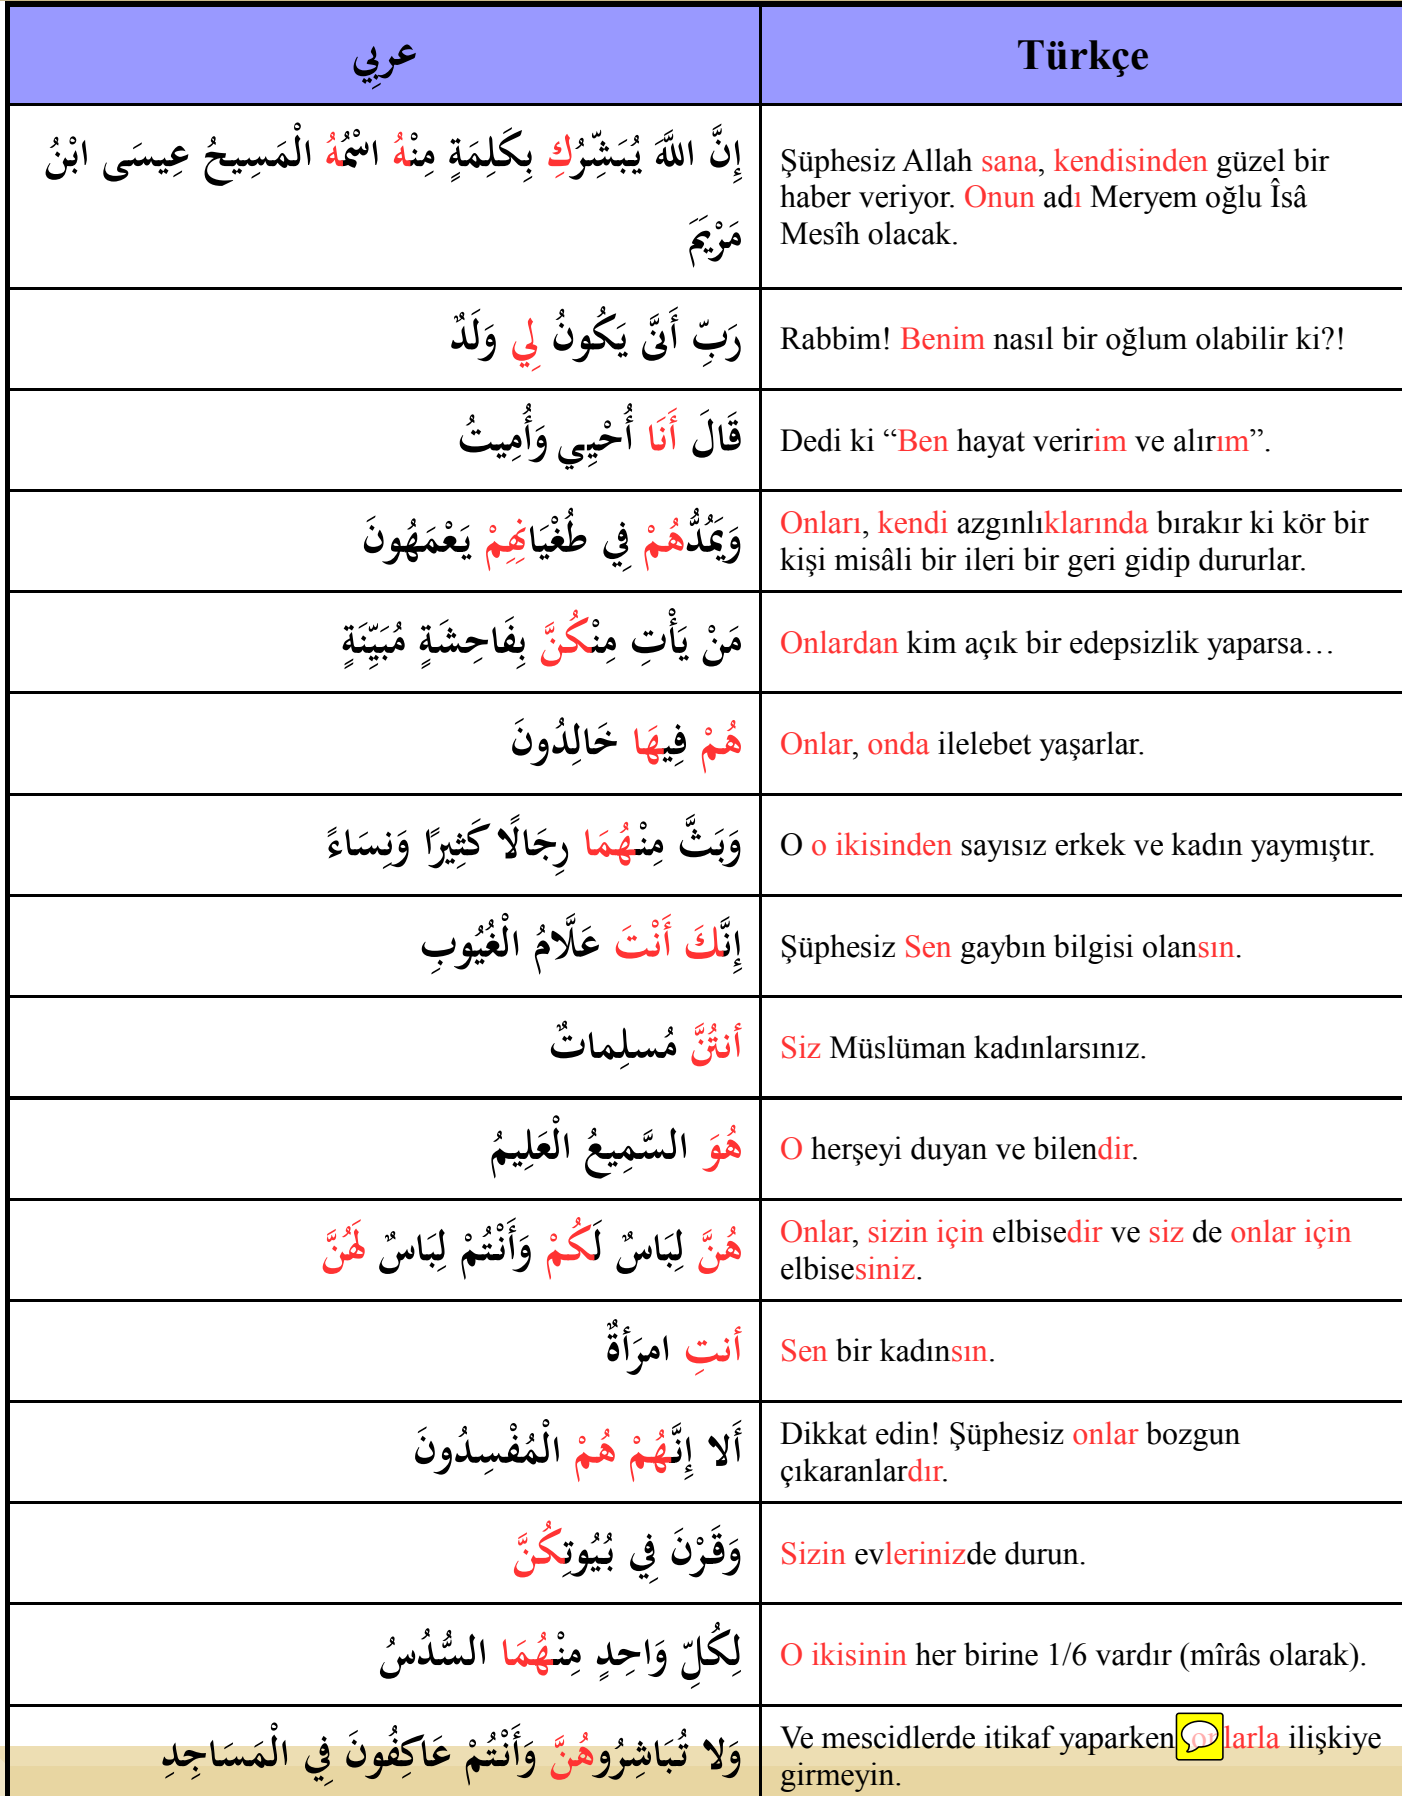 عربِي
Türkçe
إِنَّ اللَّهَ يُبَشِّرُكِ بِكَلِمَةٍ مِنْهُ اسْمُهُ الْمَسِيحُ عِيسَى ابْنُ
مَرْيَمَ
Şüphesiz Allah sana, kendisinden güzel bir
haber veriyor. Onun adı Meryem oğlu Îsâ
Mesîh olacak.
رَبِّ أَنَّى يَكُونُ لِي وَلَدٌ
Rabbim! Benim nasıl bir oğlum olabilir ki?!
قَالَ أَنَا أُحْيِي وَأُمِيتُ
Dedi ki “Ben hayat veririm ve alırım”.
وَيَمُدُّهُمْ فِي طُغْيَانِهِمْ يَعْمَهُونَ
Onları, kendi azgınlıklarında bırakır ki kör bir
kişi misâli bir ileri bir geri gidip dururlar.
مَنْ يَأْتِ مِنْكُنَّ بِفَاحِشَةٍ مُبَيِّنَةٍ
Onlardan kim açık bir edepsizlik yaparsa…
هُمْ فِيهَا خَالِدُونَ
Onlar, onda ilelebet yaşarlar.
وَبَثَّ مِنْهُمَا رِجَالًا كَثِيرًا وَنِسَاءً
O o ikisinden sayısız erkek ve kadın yaymıştır.
إِنَّكَ أَنْتَ عَلَّامُ الْغُيُوبِ
Şüphesiz Sen gaybın bilgisi olansın.
أنتُنَّ مُسلِماتٌ
Siz Müslüman kadınlarsınız.
هُوَ السَّمِيعُ الْعَلِيمُ
O herşeyi duyan ve bilendir.
هُنَّ لِبَاسٌ لَكُمْ وَأَنْتُمْ لِبَاسٌ لَهُنَّ
Onlar, sizin için elbisedir ve siz de onlar için
elbisesiniz.
أنتِ امرَأةٌ
Sen bir kadınsın.
أَلا إِنَّهُمْ هُمْ الْمُفْسِدُونَ
Dikkat edin! Şüphesiz onlar bozgun
çıkaranlardır.
وَقَرْنَ فِي بُيُوتِكُنَّ
Sizin evlerinizde durun.
لِكُلِّ وَاحِدٍ مِنْهُمَا السُّدُسُ
O ikisinin her birine 1/6 vardır (mîrâs olarak).
وَلا تُبَاشِرُوهُنَّ وَأَنْتُمْ عَاكِفُونَ فِي الْمَسَاجِدِ
Ve mescidlerde itikaf yaparken onlarla ilişkiye
girmeyin.